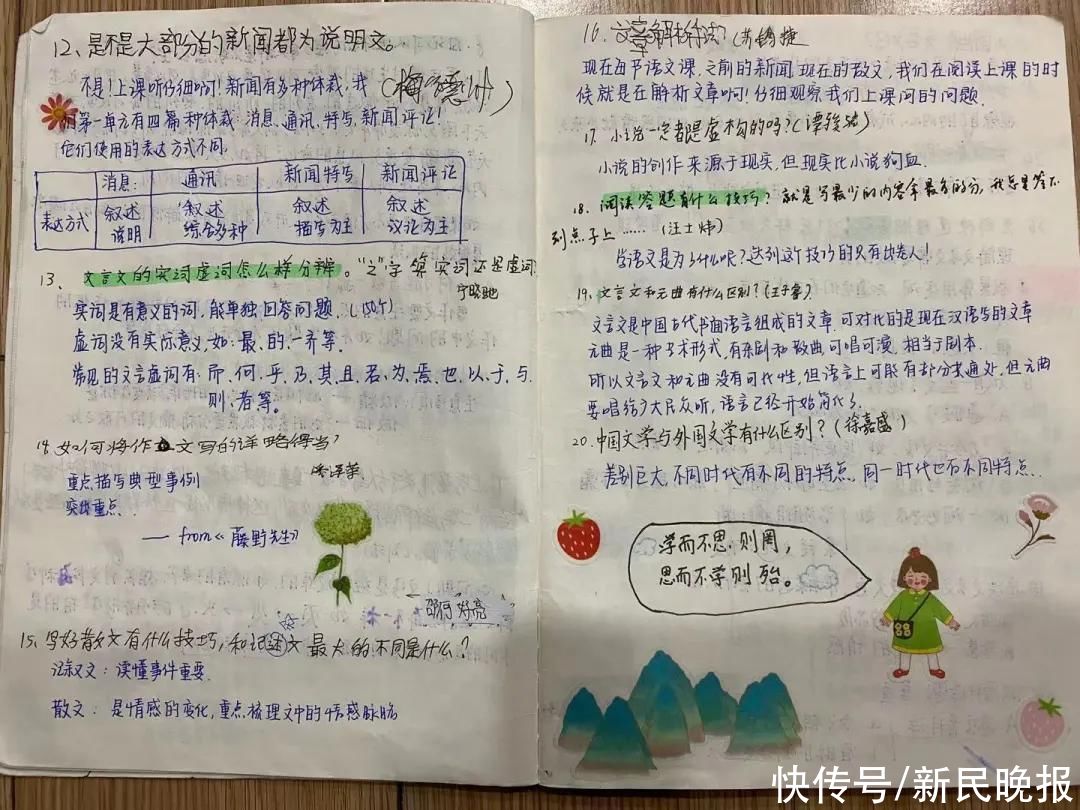 12. 是不是大部分的新闻都为说明文。
不是！上课听仔细啊！新闻有多种体裁，我
们第一单元有四篇种体裁：消息、通讯、特写、新闻评论！
它们使用的表达方式不同。
消息： 通讯 新闻特写 新闻评论
表达方式 叙述 叙述 叙述 叙述
说明 综合多种 描写为主 议论为主
13. 文言文的实词虚词怎么样分辨。"之"字算实词还是虚词？
实词是有意义的词，能单独回答问题。（150个）
虚词没有实际意义，如：最、的、一齐等。
常见的文言虚词有：而、何、乎、乃、其、且、若、为、焉、也、以、于、与、
则、者等。
14. 如何将作文写的详略得当？
重点描写典型事例
突出重点
—— from《藤野先生》
15. 写好散文有什么技巧，和记述文最大的不同是什么？
记叙文：读懂事件重要
散文：是情感的变化，重点梳理文中的情感脉络
16. 文章解析方法
现在每节语文课，之前的新闻，现在的散文，我们在阅读上课的时
候就是在解析文章啊！仔细观察我们上课问的问题
17. 小说一定都是虚构的吗？（谭骏
小说的创作来源于现实，但现实比小说狗血
18. 阅读答题有什么技巧？就是写最少的内容拿最多的分，我总是答不
到点子上……（汪士炜）
学语文是为了什么呢？达到这技巧的只有出卷人！
19. 文言文和元曲有什么区别？（王子睿）
文言文是中国古代书面语言组成的文章，可对比的是现在汉语写的文章
元曲是一种艺术形式，有杂剧和散曲，可唱可演，相当于剧本
所以文言文和元曲没有可比性，但语言上可能有部分共通处，但元曲
要唱给大民众听，语言已经开始简化了
20. 中国文学与外国文学有什么区别？（徐嘉盛）
差别巨大，不同时代有不同的特点，同一时代也有不同特点
学而不思则罔，
思而不学则殆。
快传号/新民晚报